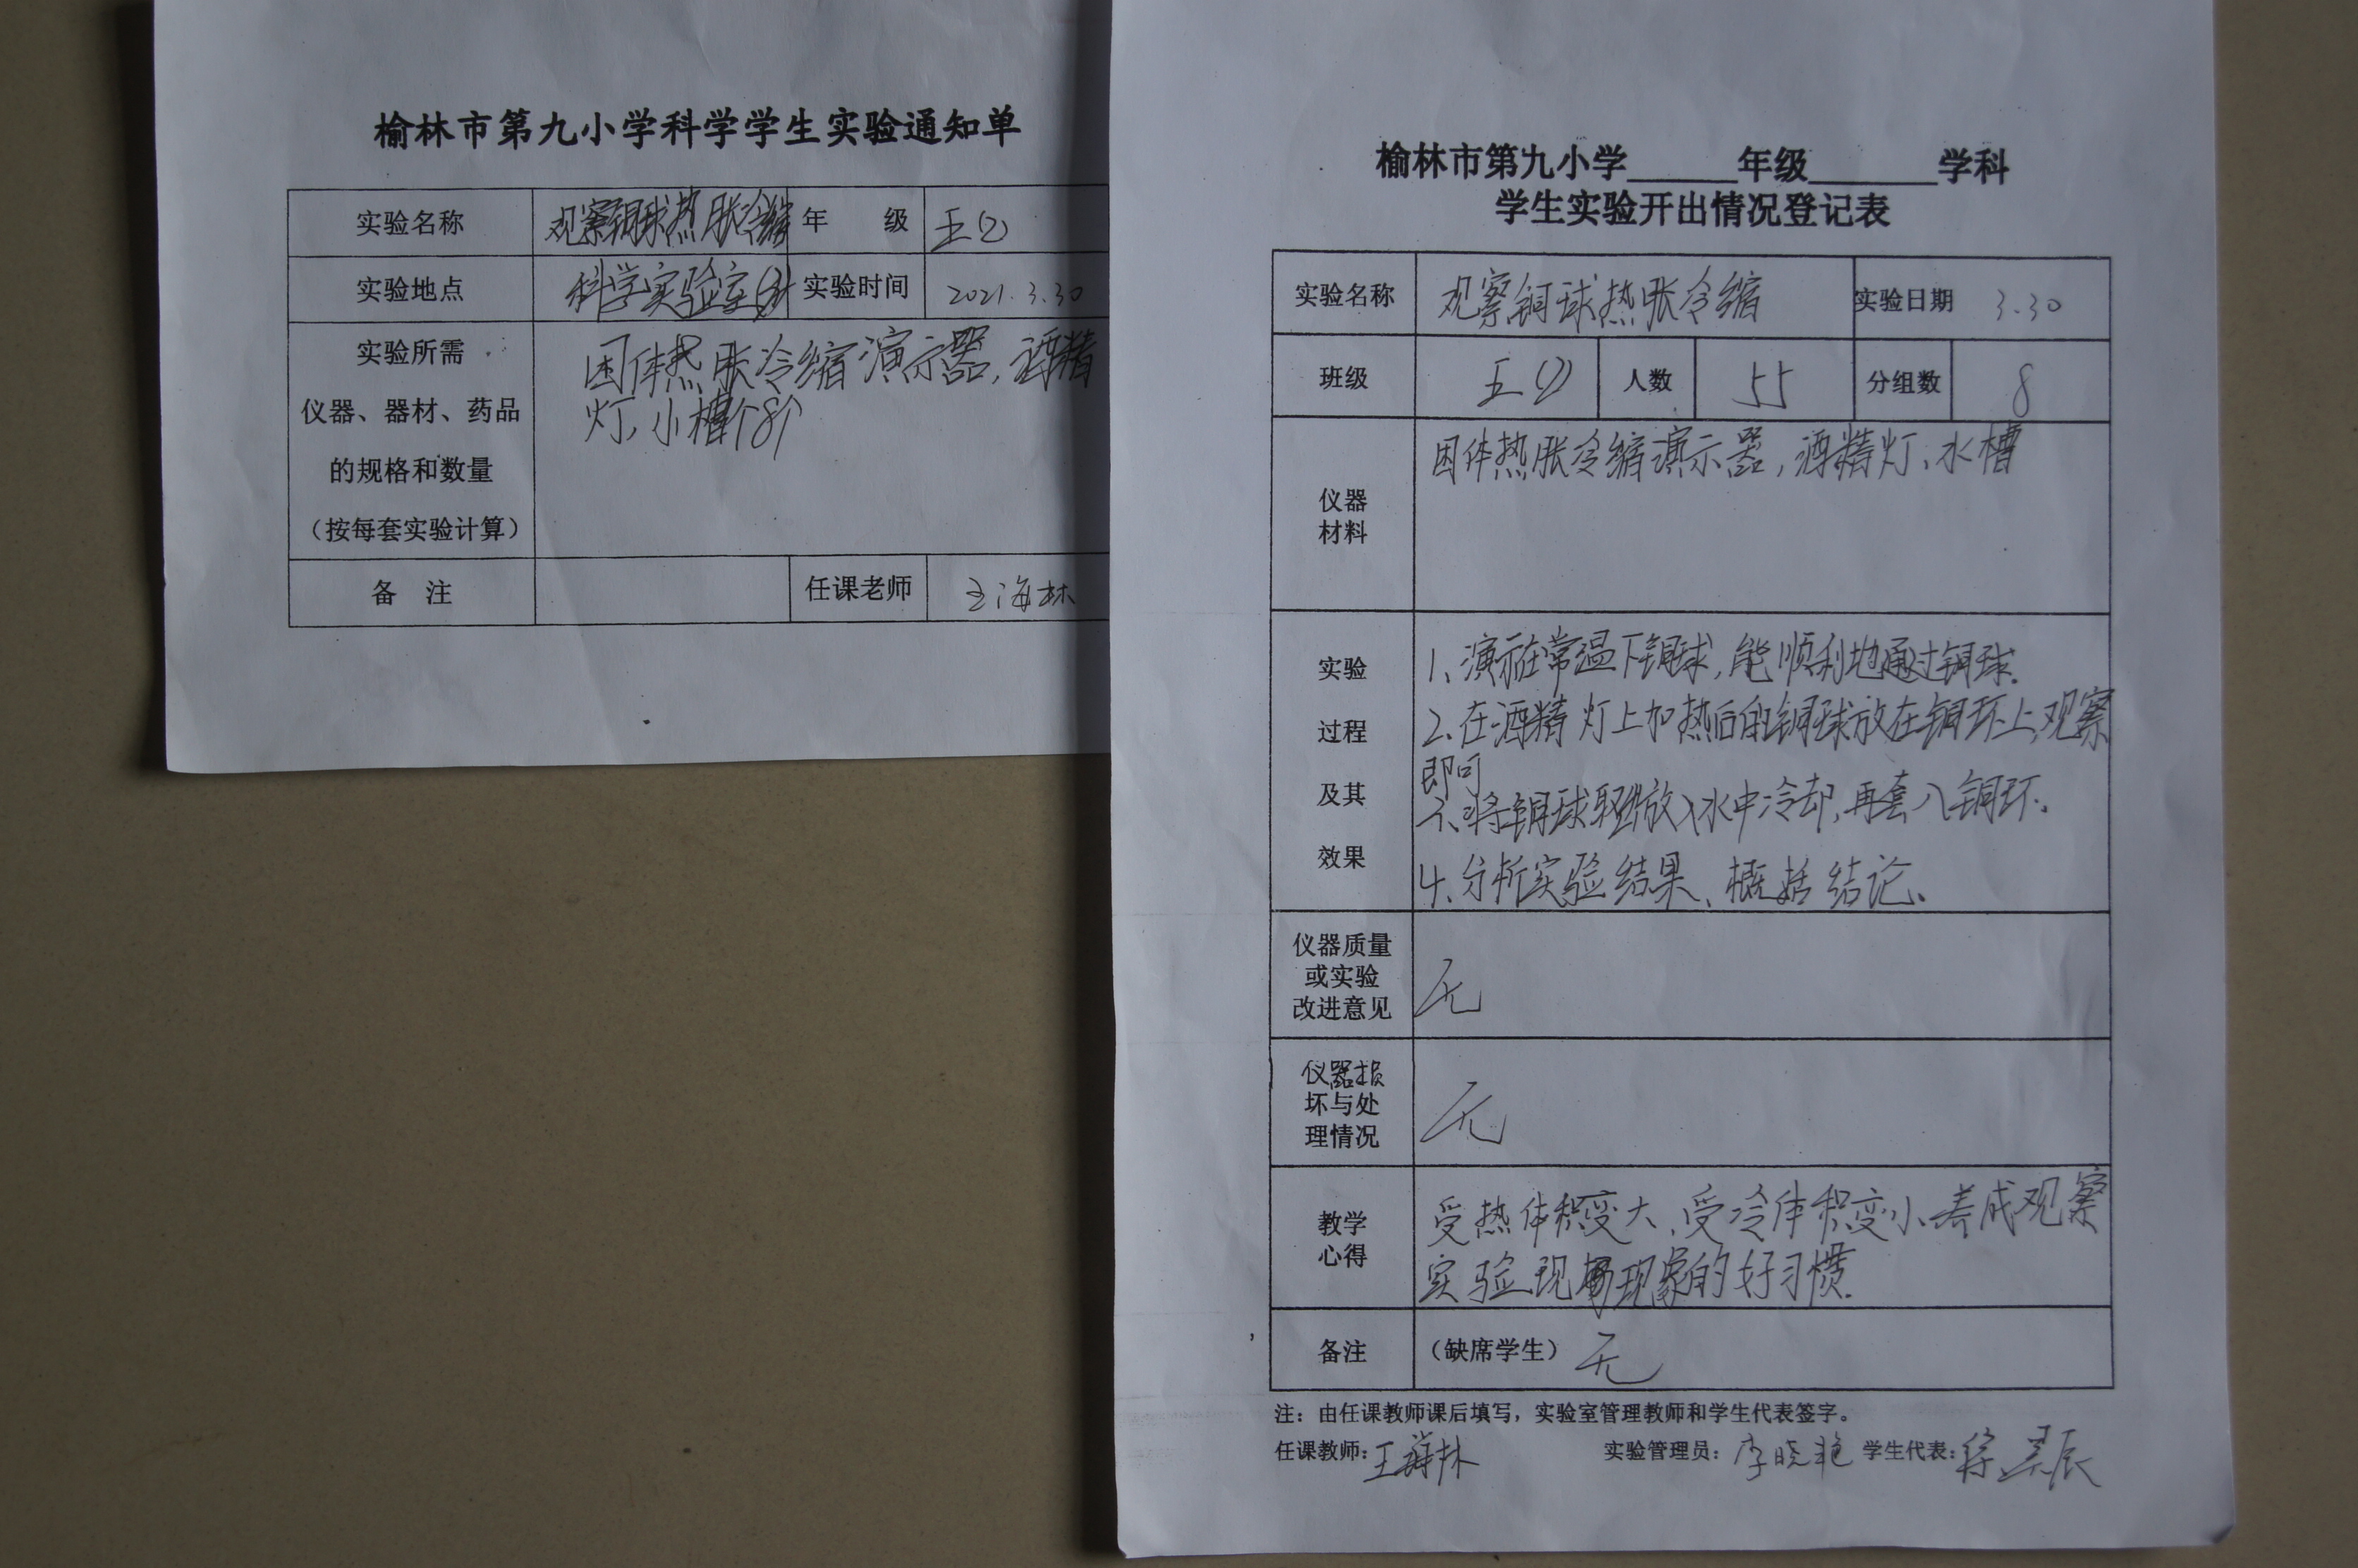 榆林市第九小学科学学生实验通知单
实验名称 观察铜球热胀冷缩 年 级 五(2)
实验地点 科学实验室 实验时间 2021.3.30
实验所需
仪器、器材、药品
的规格和数量
(按每套实验计算)
固体热胀冷缩演示器,酒精
灯、小槽个8个
备 注 任课老师 王海林
榆林市第九小学______年级______学科
学生实验开出情况登记表
实验名称 观察铜球热胀冷缩 实验日期 3.30
班级 五(2) 人数 55 分组数 8
仪器
材料
固体热胀冷缩演示器,酒精灯、水槽
实验
过程
及其
效果
1、演示在常温下铜球,能顺利地通过铜球.
2、在酒精灯上加热后的铜球放在铜环上,观察
即可
3、将铜球放入水中冷却,再套入铜环、
4、分析实验结果、概括结论、
仪器质量
或实验
改进意见
无
仪器损
坏与处
理情况
无
教学
心得
受热体积变大、受冷体积变小、养成观察
实验现象的好习惯.
备注 (缺席学生) 无
注:由任课教师课后填写,实验室管理教师和学生代表签字。
任课教师:王海林 实验管理员:李晓艳 学生代表: